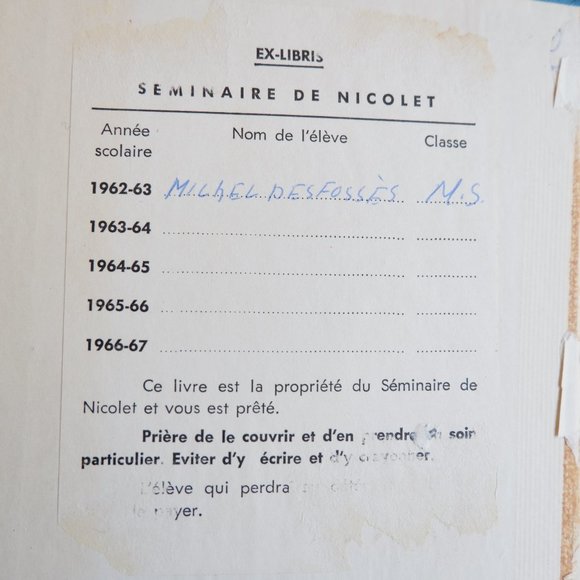 EX-LIBRIS
SEMINAIRE DE NICOLET
Année scolaire Nom de l'élève Classe
1962-63 MICHEL DESFOSSÈS M.S.
1963-64
1964-65
1965-66
1966-67
Ce livre est la propriété du Séminaire de
Nicolet et vous est prêté.
Prière de le couvrir et d'en prendre soin
particulier. Eviter d'y écrire et d'y crayonner.
L'élève qui perdra
payer.